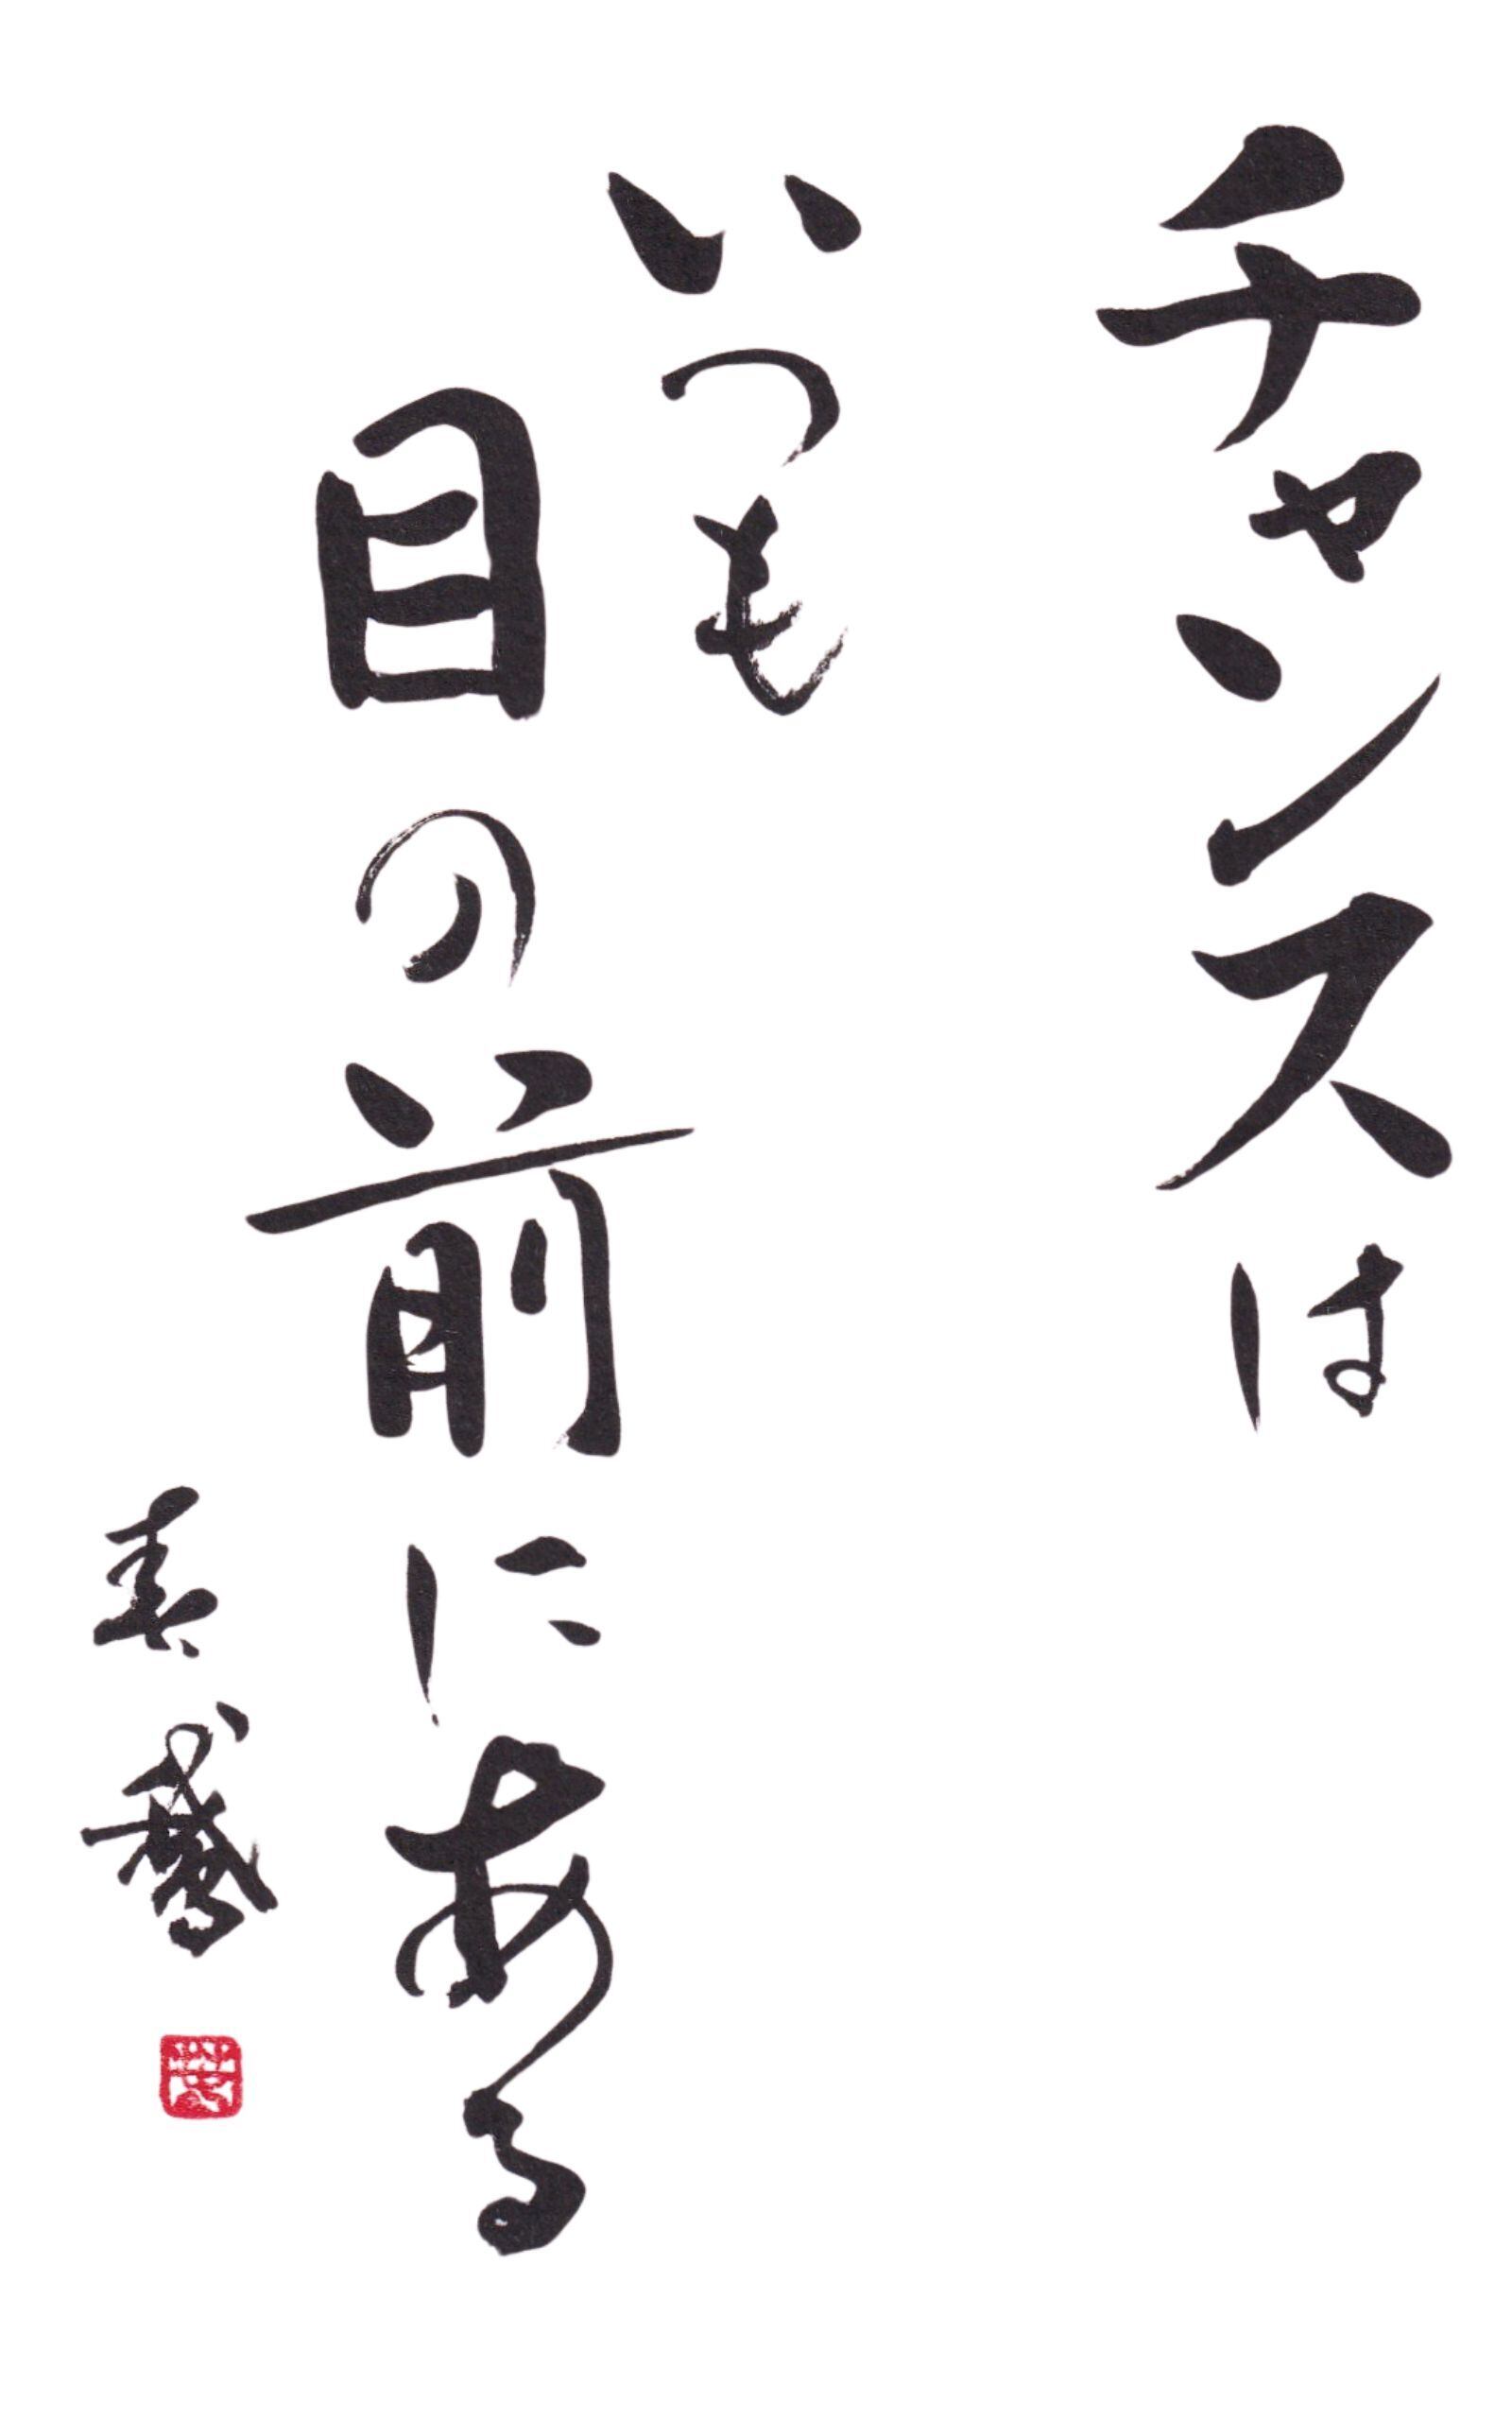 チャンスは
いつも
目の前にある